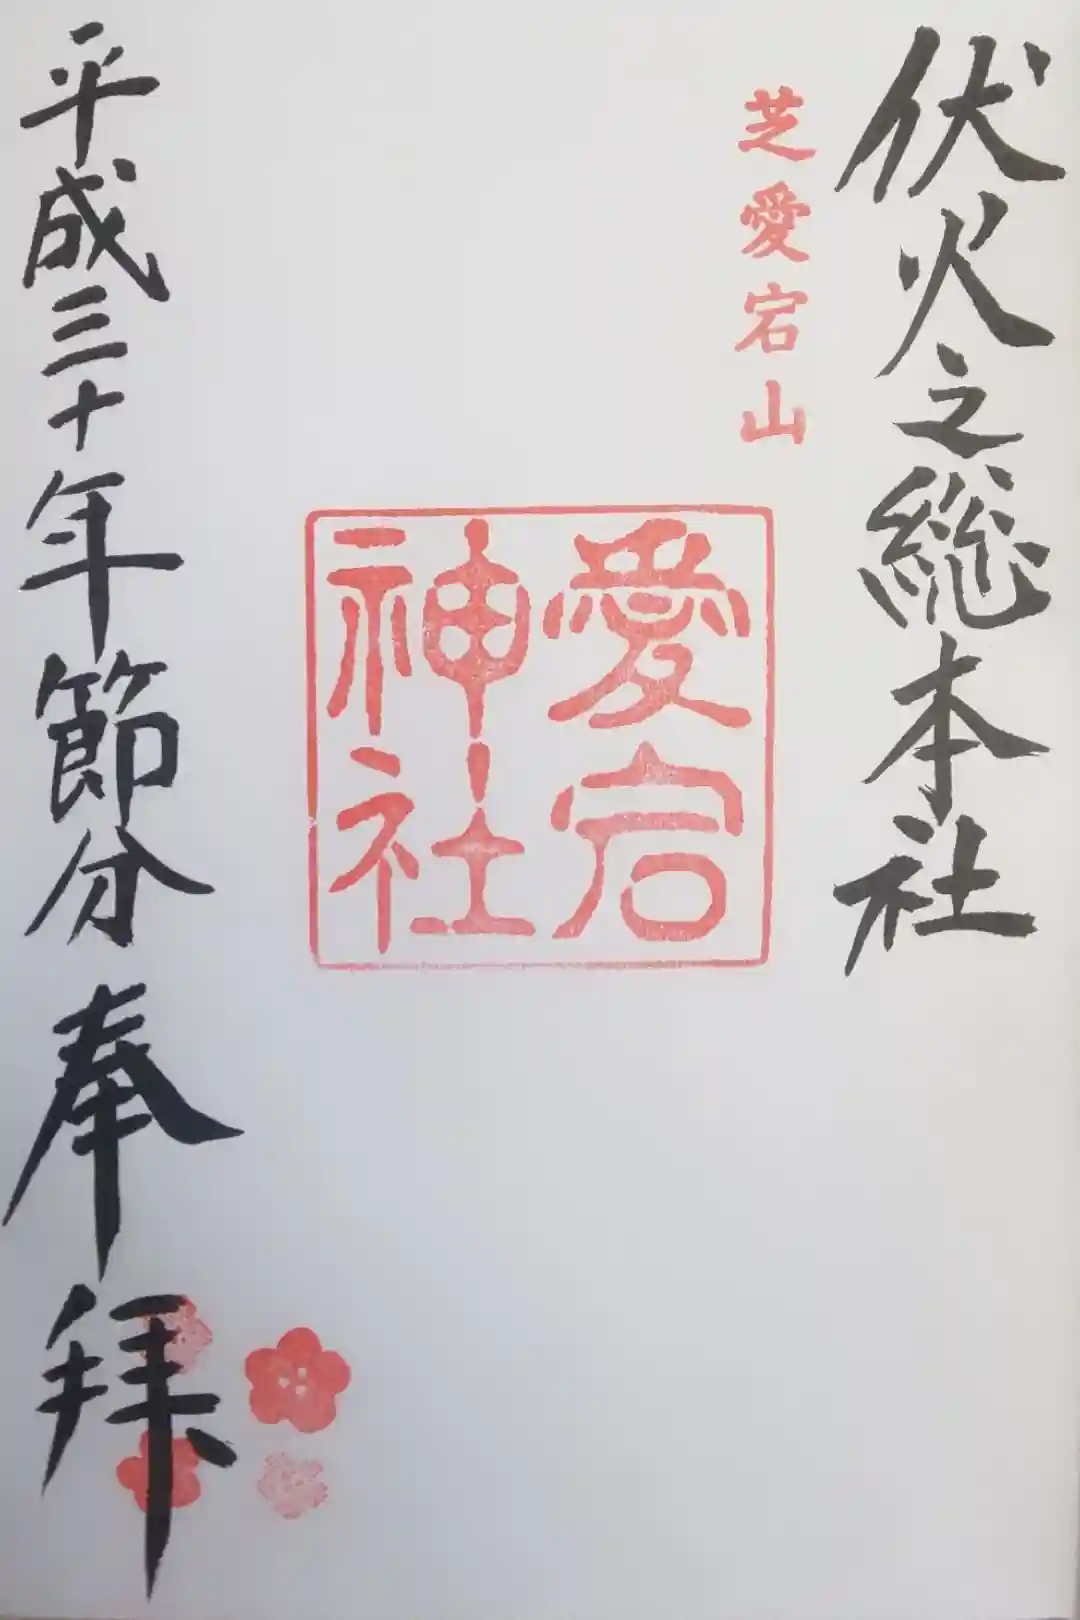 伏火之総本社
芝愛宕山
愛宕
神社
平成三十年節分奉拝